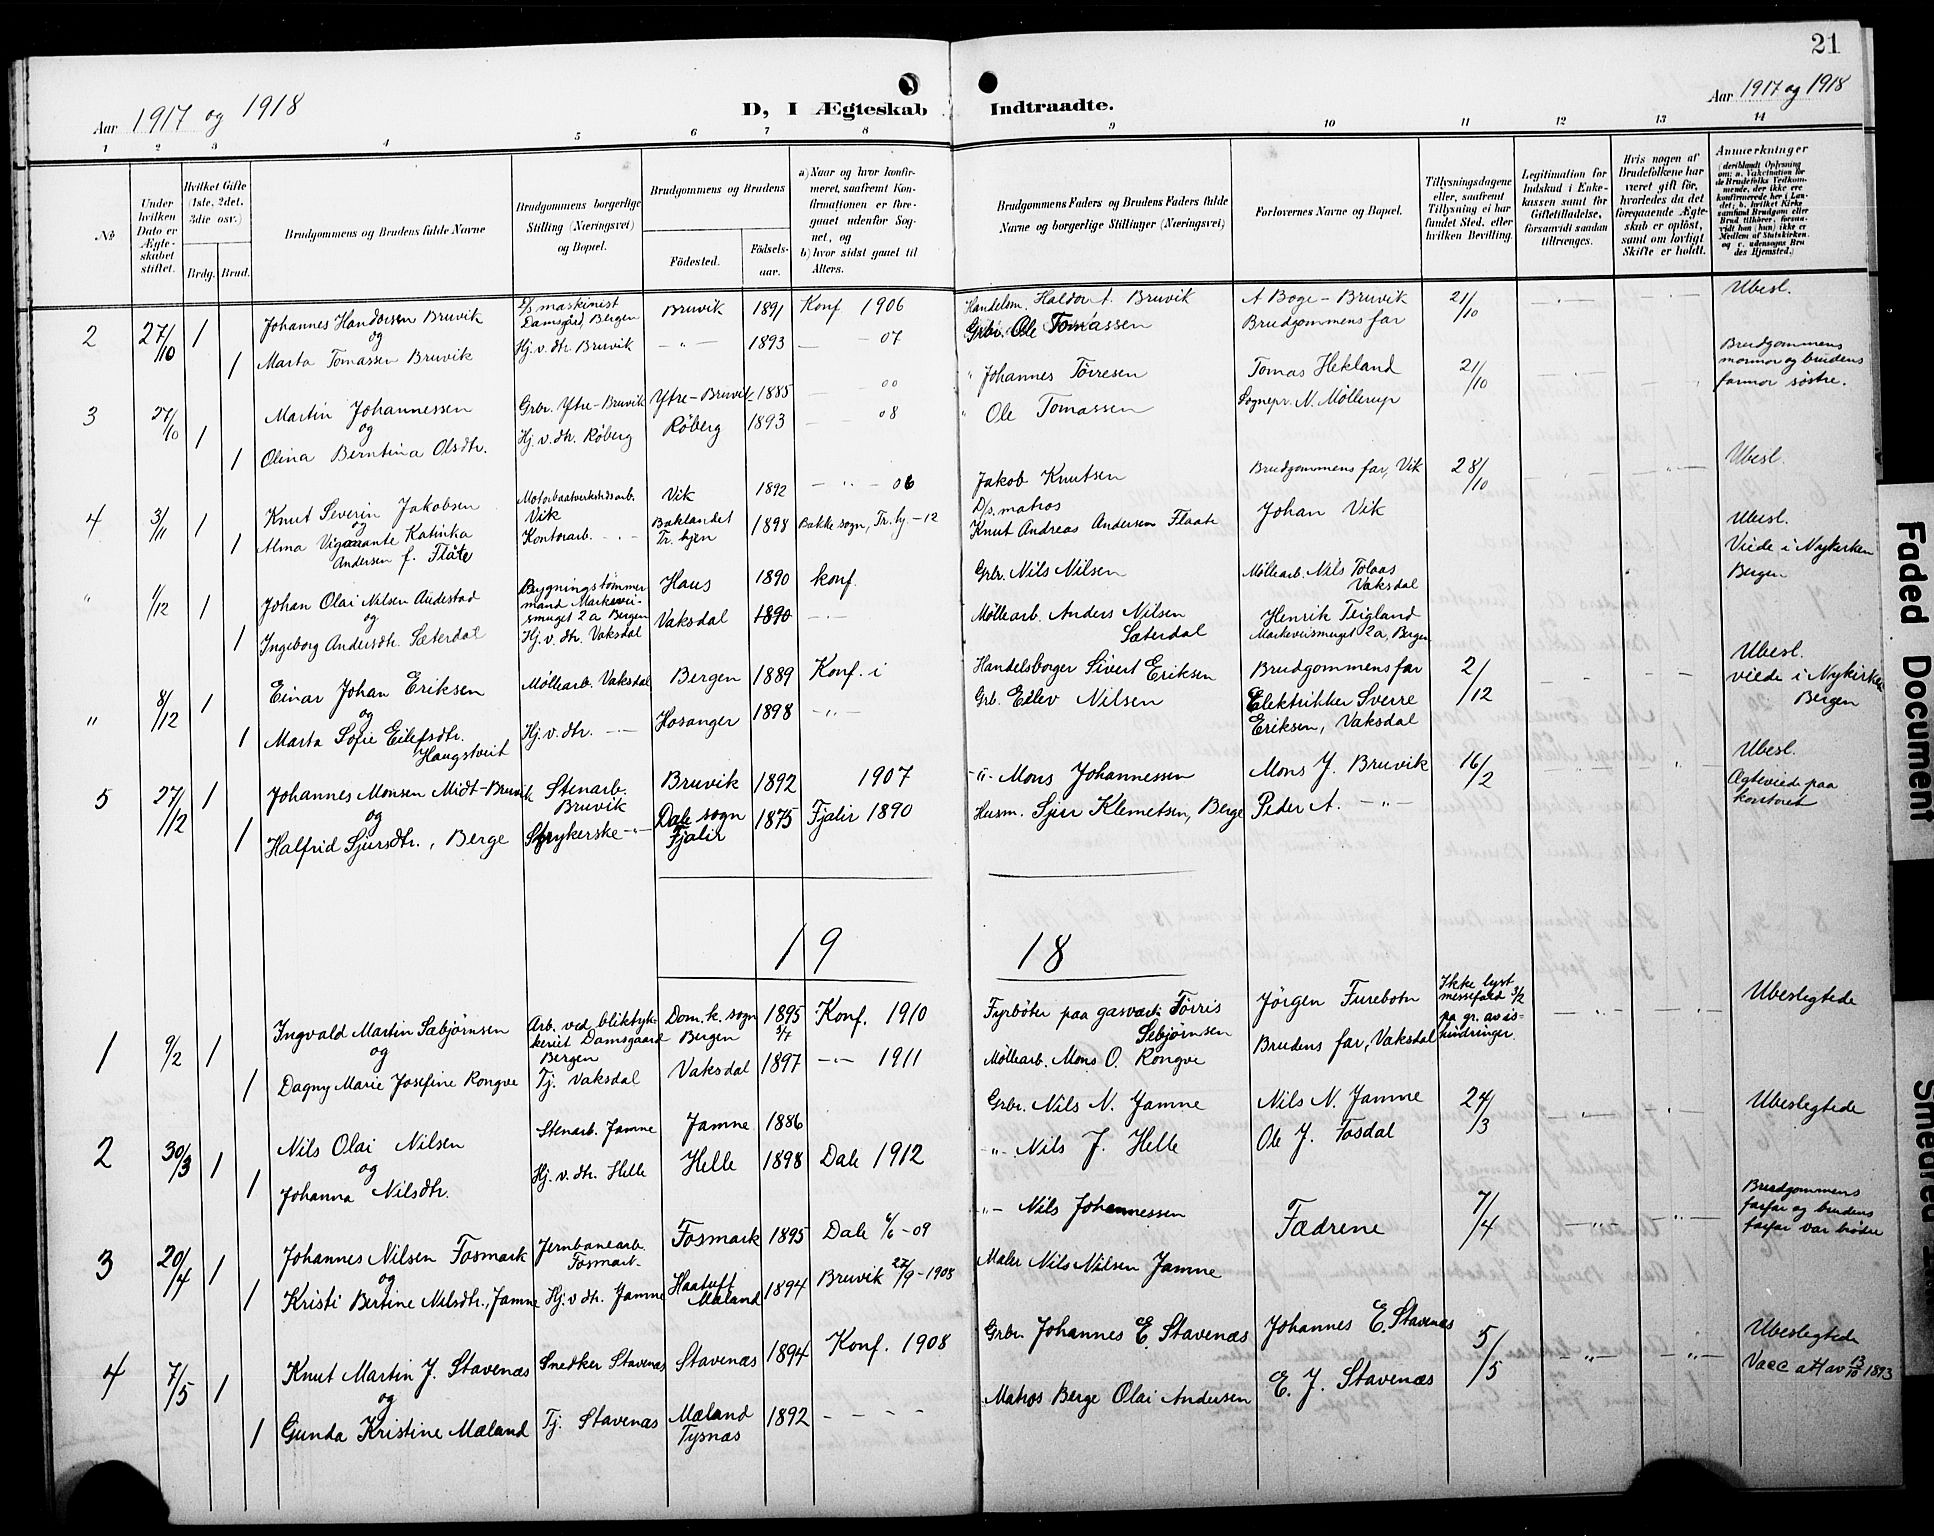 21
Aar 1917 og 1918
D, I Ægteskab Indtraadte.
Aar 1917 og 1918
1 2 3 4 5 6 7 8 9 10 11 12 13 14
No
Under hvilken Dato er Ægteskabet stiftet.
Hvilket Gifte (1ste, 2det, 3die osv.)
Brdg. Brud.
Brudgommens og Brudens fulde Navne
Brudgommens borgerlige Stilling (Næringsvei) og Bopæl.
Brudgommens og Brudens
Fødested.
Fødselsaar.
a) Naar og hvor konfirmeret, saafremt Konfirmationen er foregaaet udenfor Sognet, og
b) hvor sidst gaaet til Alters.
Brudgommens Faders og Brudens Faders fulde Navne og borgerlige Stillinger (Næringsvei)
Forlovernes Navne og Bopæl.
Tillysningsdagene eller, saafremt Tillysning ei har fundet Sted, efter hvilken Bevilling.
Legitimation for Indskud i Enkekassen samt for Giftetilladelse, forsaavidt saadan tiltrænges.
Hvis nogen af Brudefolkene har været gift før, hvorledes da det foregaaende Ægteskab er opløst, samt om lovligt Skifte er holdt.
Anmerkninger
(deriblandt Oplysning om: a. Vakcination for de Brudefolks Vedkommende, der ikke ere konfirmerede her i Landet; b. hvilket Kirkesamfund Brudgom eller Brud tilhører, forsaavidt han (hun) ikke er Medlem af Statskirken, og c. udensogns Brudes Hjemsted.)
2 27/10 1 Johannes Handorsen Bruvik D/s maskinist Damsgård, Bergen Bruvik 1891 Konf 1906 Handelsm. Haldor A. Bruvik A Boge - Bruvik 21/10 Ubesl.
og
1 Marta Tomassen Bruvik Hj. v. dtr. Bruvik - " - 1893 — 07 Grbr. Ole Tomassen Brudgommens far
3 27/10 1 Martin Johannessen Grbr. Ytre-Bruvik Ytre-Bruvik 1885 — 00 " Johannes Törresen Tomas Hekland 21/10 Brudgommens mormor og brudens farmor søstre.
og
1 Olina Berntina Olsdtr. Hj. v. dtr. Røberg Røberg 1893 — 08 " Ole Tomassen Sognepr. N. Møllerup
4 3/11 1 Knut Severin Jakobsen Motorbaatverkstedsarb. Vik Vik 1892 - " - 06 Jakob Knutsen Brudgommens far, Vik 28/10 Ubesl.
og
1 Alma Vigante Katinka Andersen f. Flåte Kontorarb. - " - Baklandet Tr. hjen 1898 Bakke sogn, Tr. hj. - 12 D/s. matros Knut Andreas Andersen Flaate Johan Vik
" 1/12 1 Johan Olai Nilsen Andestad Bygningstømmermand Markeveismuget 2 a Bergen Haus 1890 konf. Grbr. Nils Nilsen Møllearb. Nils Tolaas Vaksdal Ubesl. Viede i Nykirken Bergen
og
1 Ingeborg Andersdtr. Sæterdal Hj. v. dtr. Vaksdal Vaksdal 1890 - " - Møllearb. Anders Nilsen Sæterdal Henrik Teigland Markeveismuget 2 a, Bergen
" 8/12 1 Einar Johan Eriksen Møllearb. Vaksdal Bergen 1889 Konf. i Handelsborger Sivert Eriksen Brudgommens far 2/12 Ubesl. viede i Nykirken Bergen
og
1 Marta Sofie Eilefsdtr. Haugstveit Hj. v. dtr. - " - Hosanger 1898 - " - Grb. Eilev Nilsen Elektrikker Sverre Eriksen, Vaksdal
5 27/12 1 Johannes Monsen Midt-Bruvik Stenarb. Bruvik Bruvik 1892 1907 - " - Mons Johannessen Mons J. Bruvik 16/2 Ubesl. Ægteviede paa kontoret
og
1 Halfrid Sjursdtr., Berge Strykerske - " - Dale sogn Fjalir 1875 Fjalir 1890 Husm. Sjur Klemetsen, Berge Peder A. - " -
1918
1 9/2 1 Ingvald Martin Sæbjørnsen Arb. ved bliktrykkeriet Damsgaard Bergen Dom. k. sogn Bergen 1895 5/7 Konf. 1910 Fyrbøter paa gasværk Tørris Sebjørnsen Jørgen Furebotn Ikke lyst messefald 3/2 pa gr. av ishindringer. Ubeslegtede
og
1 Dagny Marie Josefine Rongve Tj. Vaksdal Vaksdal 1897 - " - 1911 Møllearb. Mons O. Rongve Brudens far, Vaksdal
2 30/3 1 Nils Olai Nilsen Stenarb. Jamne Jamne 1886 Grbr. Nils N. Jamne Nils N. Jamne 24/3 Ubeslegtede
og
1 Johanna Nilsdtr. Hj. v. dtr. Helle Helle 1898 Dale 1912 - " - Nils J. Helle Ole J. Fosdal
3 20/4 1 Johannes Nilsen Fosmark Jernbanearb. Fosmark Fosmark 1895 Dale 6/6 - 09 - " - Nils Johannessen Fædrene 7/4 Brudgommens farfar og brudens farfar var brødre
og
1 Kristi Bertine Nilsdtr., Jamne Hj. v. dtr. Jamne Haatuft Mæland 1894 Bruvik 27/9 - 1908 Maler Nils Nilsen Jamne
4 7/5 1 Knut Martin J. Stavenæs Snedker Stavenæs Stavenæs 1894 Konf. 1908 Grbr. Johannes E. Stavenæs Johannes E. Stavenæs 5/5 Ubeslegtede
og
1 Gunda Kristine Mæland Tj. Stavenæs Mæland Tysnæs 1892 - - - - Matros Berge Olai Andersen E. J. Stavenæs Vacc att av 13/10 1893
Faded Document
Smeared